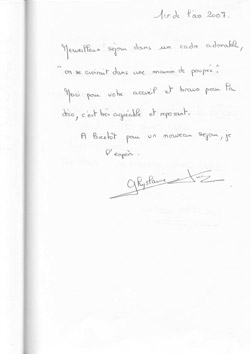 1er de l'an 2007.
Merveilleux séjour dans un cadre adorable,
"on se croirait dans une maison de poupée".
Merci pour votre accueil et bravo pour la
déco, c'est très agréable et reposant.
A Bientôt pour un nouveau séjour, je
l'espère.
Ghyslaine